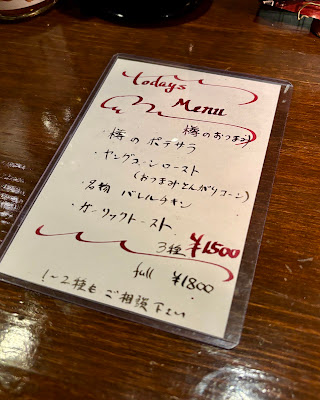 todays
Menu
樽のおつまみ
・樽のポテサラ
・ヤングコーンロースト
(おつまみとんがりコーン)
・名物 バレルチキン
・ガーリックトースト
3種 ¥1500
full ¥1800
1〜2種も ご相談下さい